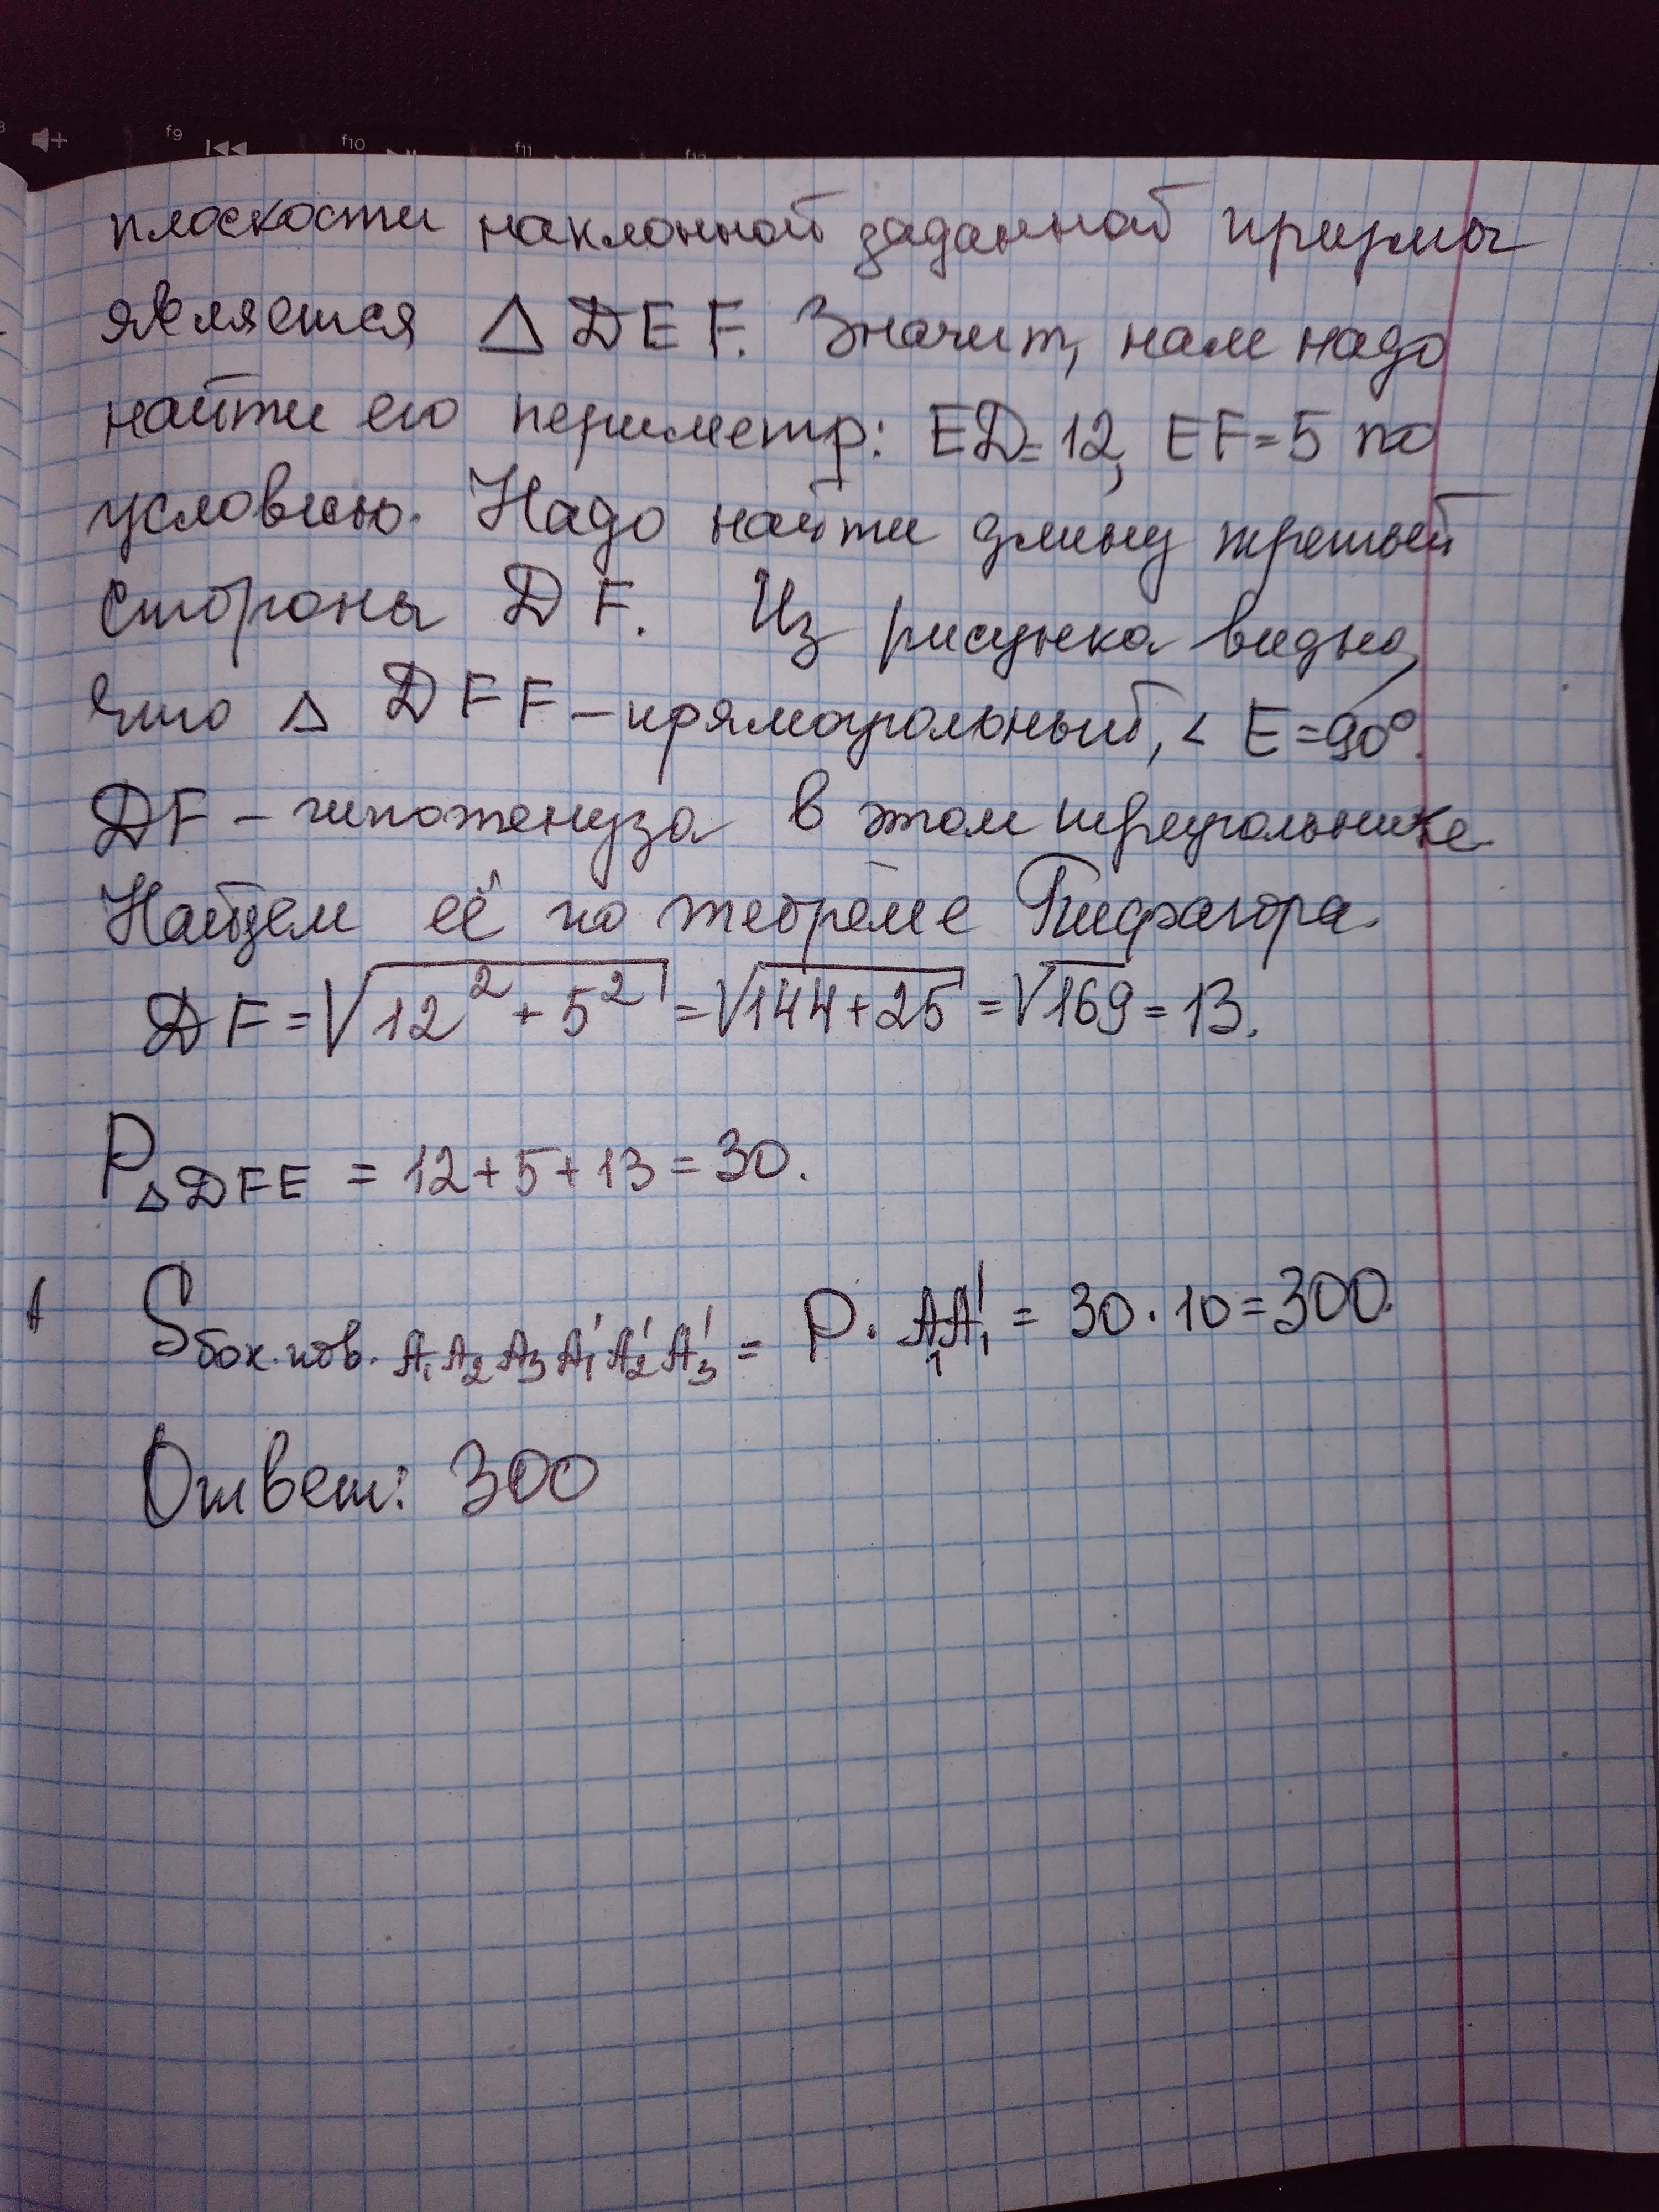 f9
f10
f11
плоскости наклонной заданной призмы
является △ DEF. Значит, нам надо
найти его периметр: ED=12, EF=5 по
условию. Надо найти длину третьей
стороны DF. Из рисунка видно,
что △ DFF – прямоугольный, < E=90°.
DF – гипотенуза в этом треугольнике
Найдем её по теореме Пифагора.
DF=√12²+5² = √144+25 = √169 = 13.
P△DFE = 12+5+13=30.
Sбок.пов. A₁A₂A₃A₁'A₂'A₃' = P · A₁A₁' = 30·10=300.
Ответ: 300